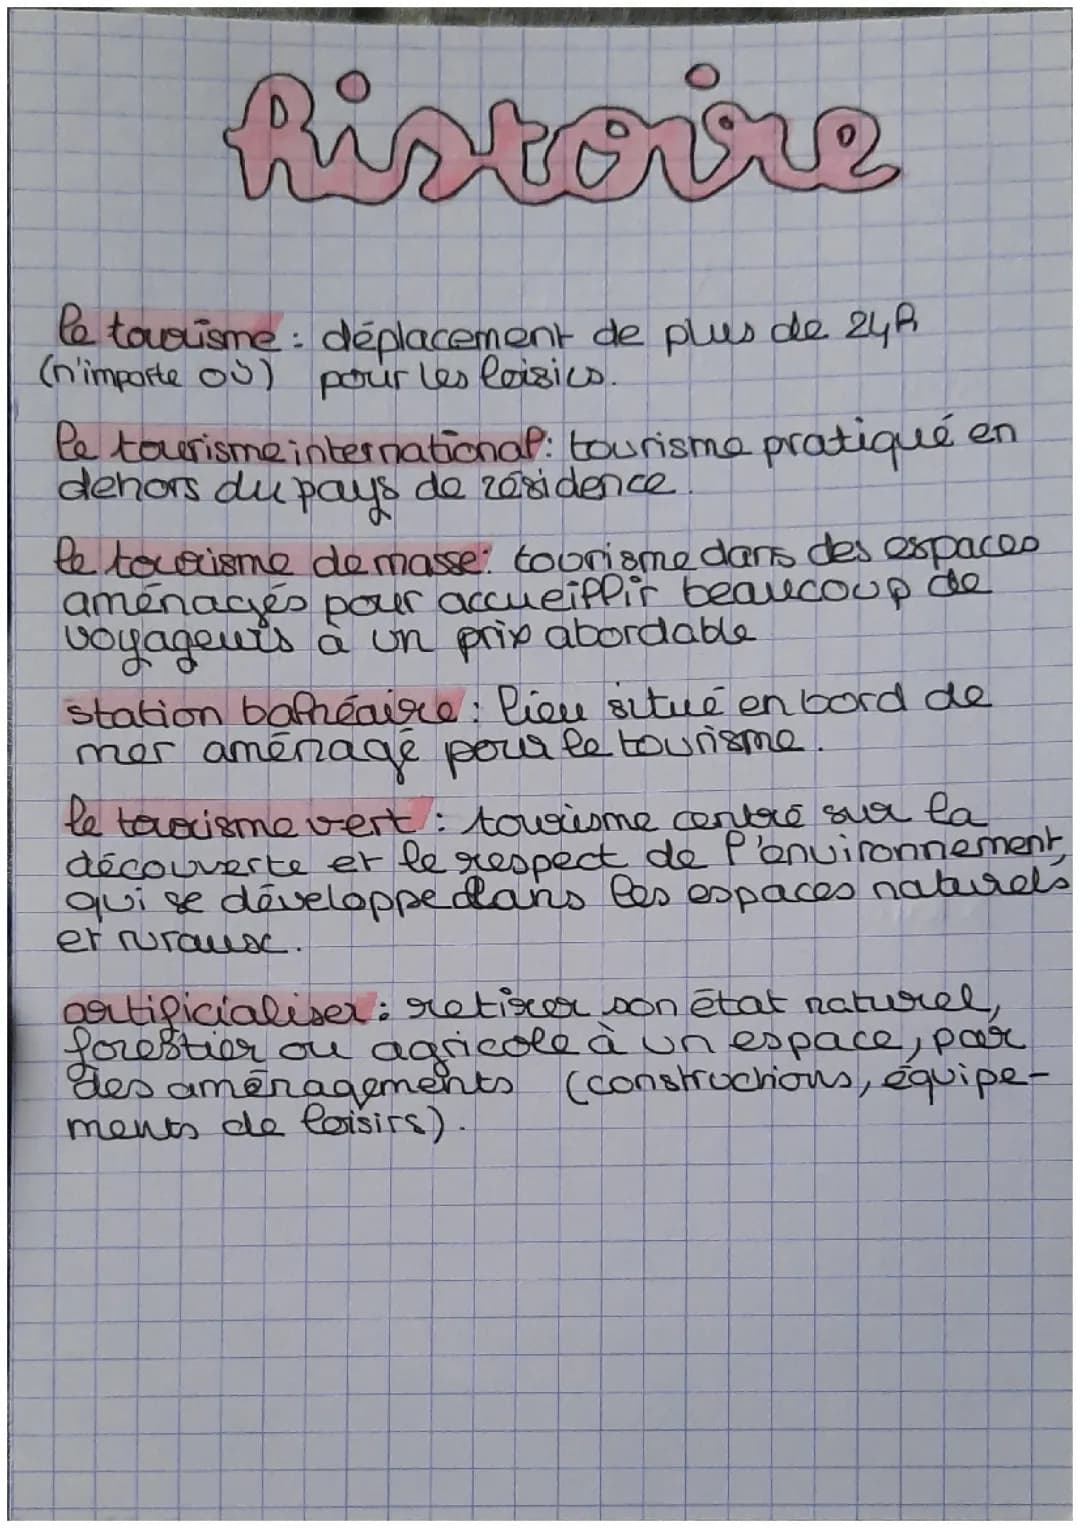 histoire
le tourisme : déplacement de plus de 24h
(n'importe où) pour les loisirs.
le tourisme international : tourisme pratiqué en
dehors du pays de résidence.
le tourisme de masse : tourisme dans des espaces
aménagés pour accueillir beaucoup de
voyageurs à un prix abordable
station balnéaire : lieu situé en bord de
mer aménagé pour le tourisme.
le tourisme vert : tourisme centré sur la
découverte et le respect de l'environnement,
qui se développe dans les espaces naturels
et ruraux.
artificialiser : retirer son état naturel,
forestier ou agricole à un espace, par
des aménagements (constructions, équipe-
ments de loisirs).